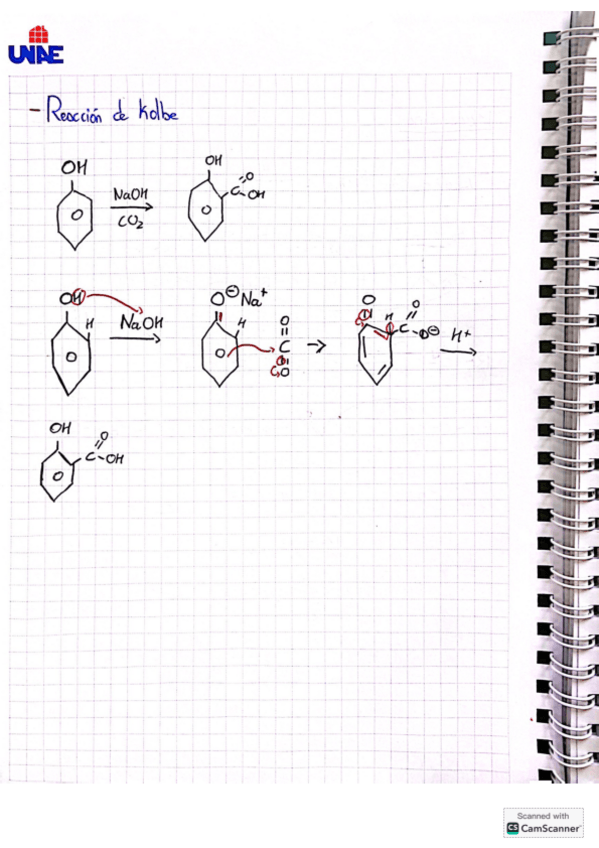 UNAE
- Reacción de Kolbe
OH
NaOH
CO2
OH
C
O
OH
OH
H
NaOH
O⊖ Na+
H
O
C
O
O
H
C
O
O⊖
H+
OH
C
O
OH
Scanned with
CS CamScanner